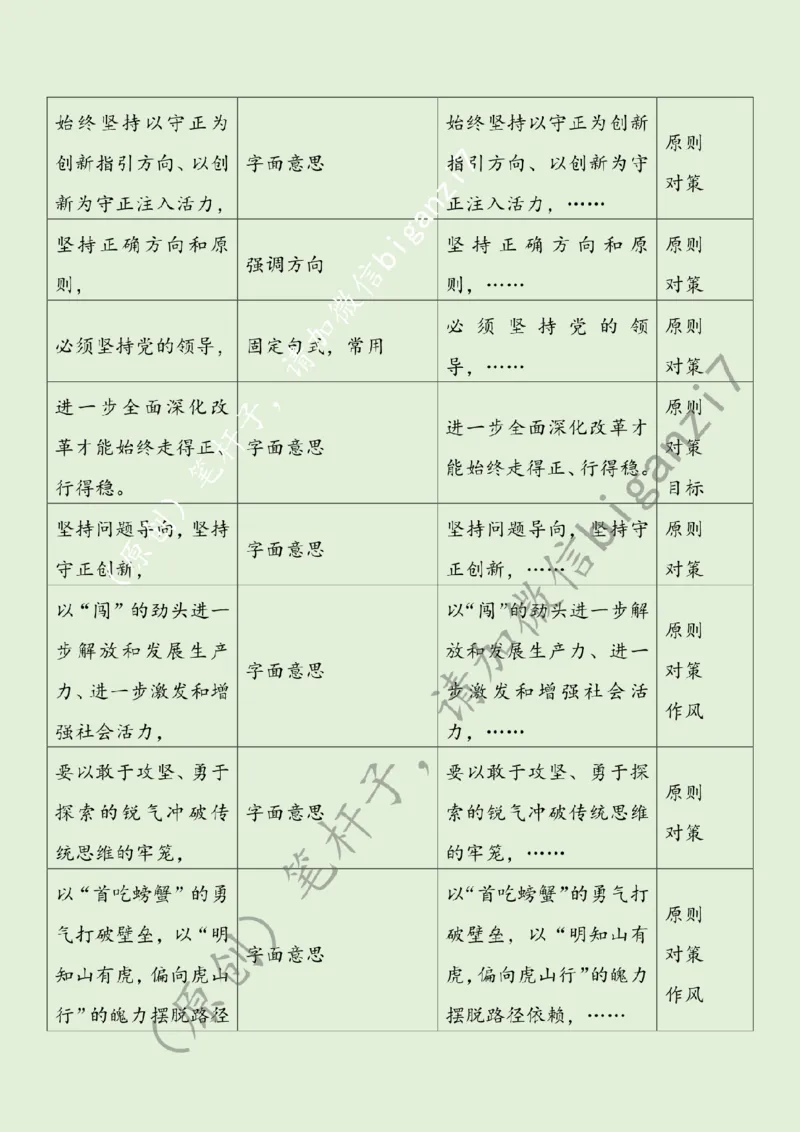 始终坚持以守正为
创新指引方向、以创
新为守正注入活力，
字面意思
始终坚持以守正为创新
指引方向、以创新为守
正注入活力，……
原则
对策
坚持正确方向和原
则，
强调方向
坚持正确方向和原
则，……
原则
对策
必须坚持党的领导，
固定句式，常用
必须坚持党的领
导，……
原则
对策
进一步全面深化改
革才能始终走得正、
行得稳。
字面意思
进一步全面深化改革才
能始终走得正、行得稳。
原则
对策
目标
坚持问题导向，坚持
守正创新，
字面意思
坚持问题导向，坚持守
正创新，……
原则
对策
以“闯”的劲头进一
步解放和发展生产
力、进一步激发和增
强社会活力，
字面意思
以“闯”的劲头进一步解
放和发展生产力、进一
步激发和增强社会活
力，……
原则
对策
作风
要以敢于攻坚、勇于
探索的锐气冲破传
统思维的牢笼，
字面意思
要以敢于攻坚、勇于探
索的锐气冲破传统思维
的牢笼，……
原则
对策
以“首吃螃蟹”的勇
气打破壁垒，以“明
知山有虎，偏向虎山
行”的魄力摆脱路径
字面意思
以“首吃螃蟹”的勇气打
破壁垒，以“明知山有
虎，偏向虎山行”的魄力
摆脱路径依赖，……
原则
对策
作风
（原创）笔杆子，请加微信biganzi7
（原创）笔杆子，请加微信biganzi7